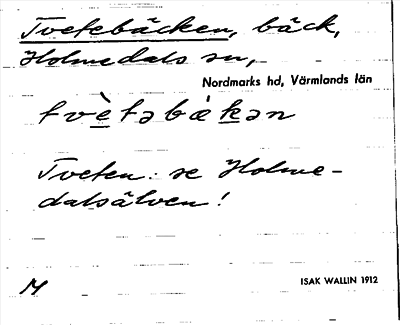 Tvetebäcken, bäck,
Holmedals sn,
Nordmarks hd, Värmlands län
tvètəbàkən
Tveten: se Holme-
dalsälven!
M
ISAK WALLIN 1912